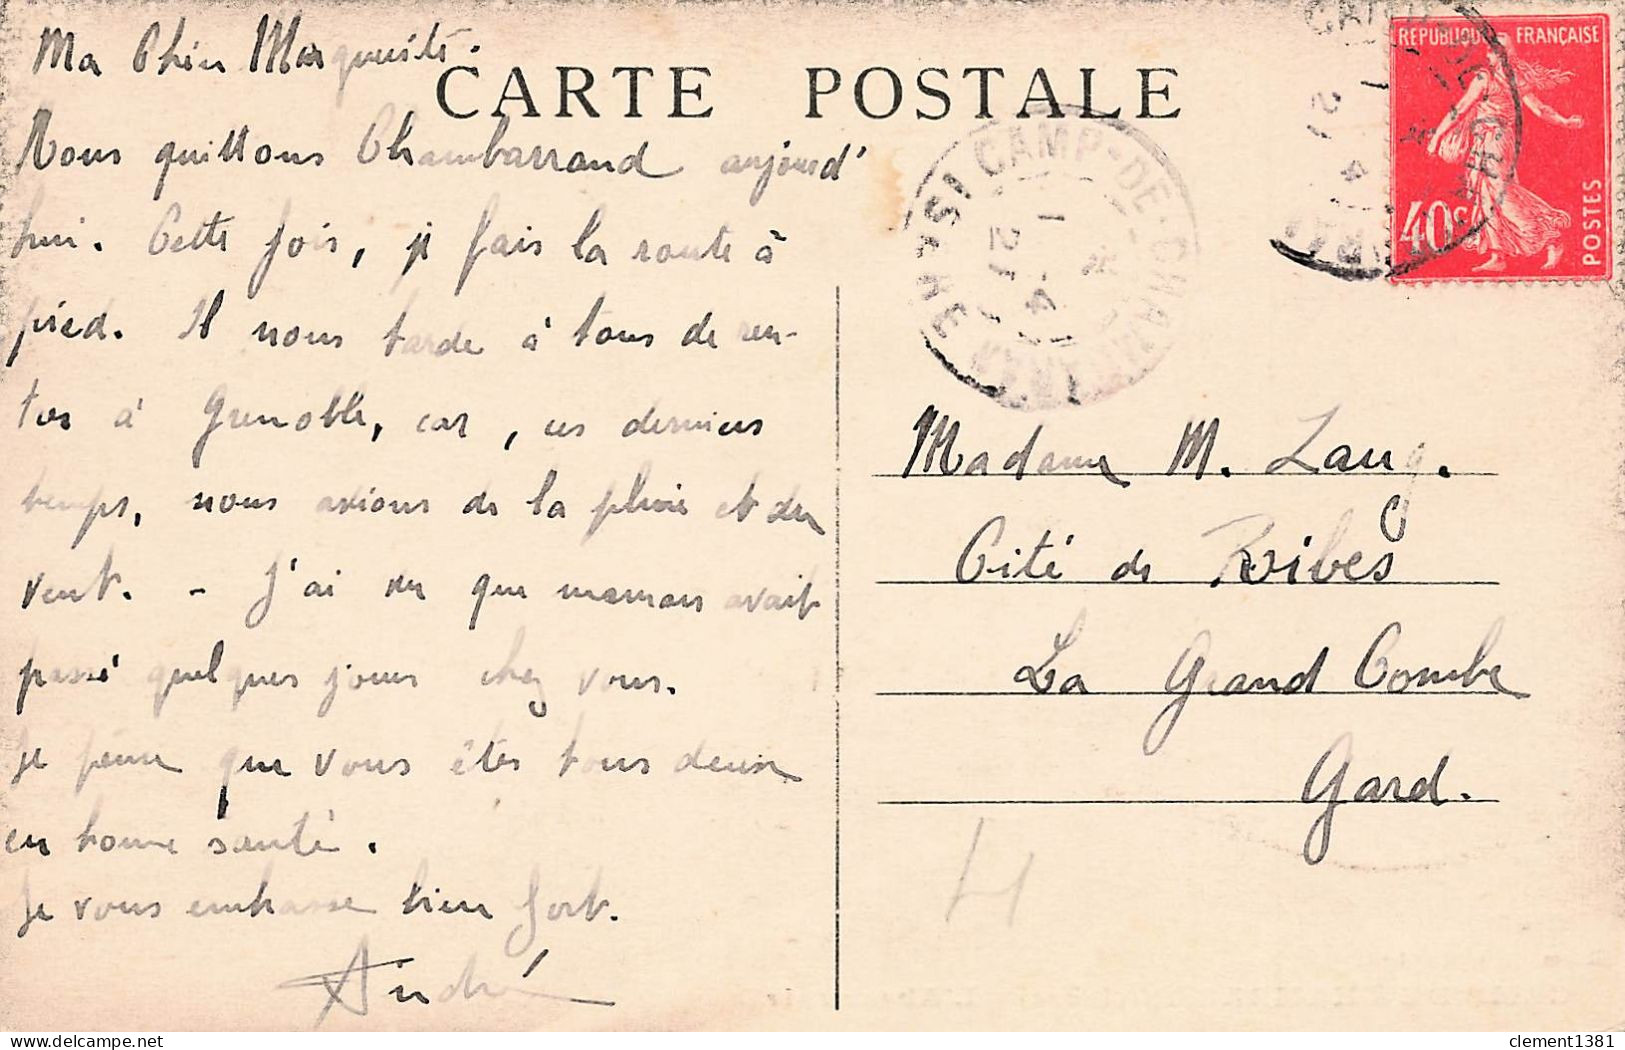 Ma Chère Marguerite.
CARTE POSTALE
Nous quittons Chambarrand aujourd'
hui. Cette fois, je fais la route à
pied. Il nous tarde à tous de ren-
trer à Grenoble, car, ces derniers
temps, nous avions de la pluie et du
vent. - J'ai vu que maman avait
passé quelques jours chez vous.
Je pense que vous êtes tous deux
en bonne santé.
Je vous embrasse bien fort.
André
REPUBLIQUE FRANÇAISE
40c
POSTES
CAMP-DE-CHAMBARAN
ISERE
Madame M. Lang.
Cité de Ribes
La Grand Combe
Gard.
clement1381